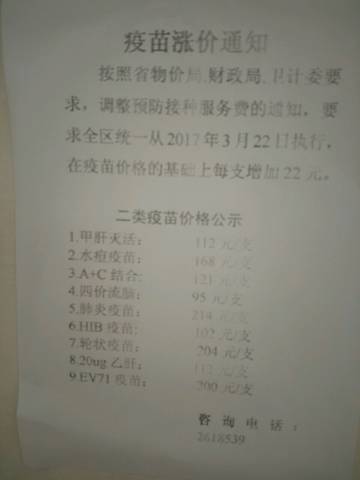 疫苗涨价通知
按照省物价局.财政局.卫计委要
求，调整预防接种服务费的通知，要
求全区统一从2017年3月22日执行，
在疫苗价格的基础上每支增加22元。
二类疫苗价格公示
1.甲肝灭活： 112元/支
2.水痘疫苗： 168元/支
3.A+C结合： 121元/支
4.四价流脑： 95元/支
5.肺炎疫苗： 214元/支
6.HIB疫苗： 102元/支
7.轮状疫苗： 204元/支
8.20ug乙肝： 112元/支
9.EV71疫苗： 200元/支
咨询电话：
2618539